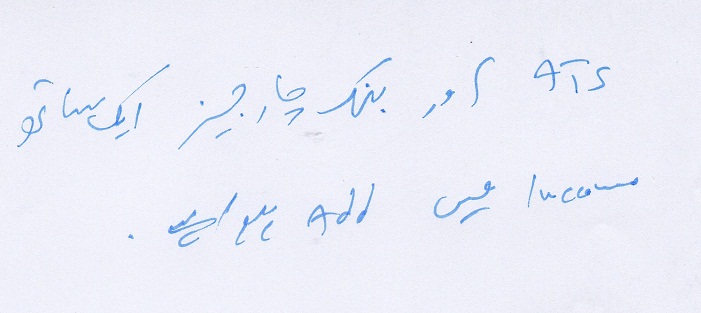 ATS اور بنک چارجز ایک ساتھ
Income میں Add ہوا ہے۔